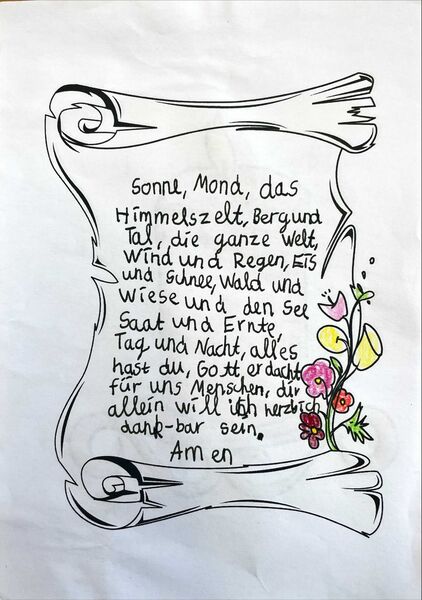 Sonne, Mond, das
Himmelszelt, Berg und
Tal, die ganze Welt,
Wind und Regen, Eis
und Schnee, Wald und
Wiese und den See
Saat und Ernte,
Tag und Nacht, alles
hast du, Gott, erdacht
für uns Menschen, dir
allein will ich herzlich
dank-bar sein.
Amen